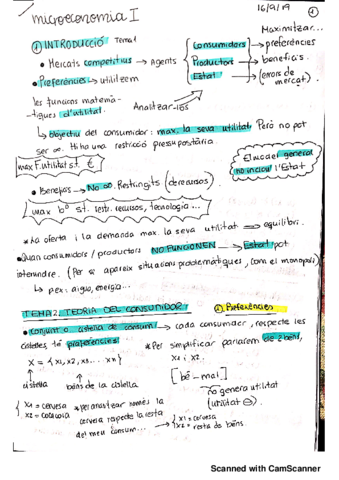 microeconomia I
16/9/19
1
① INTRODUCCIÓ Tema 1
Maximitzar...
• Mercats competitius → Agents
Consumidors → preferències
Productors → beneficis.
Estat → (errors de mercat)
• Preferències → utilitzem
les funcions matemà-
tiques d'utilitat.
Analitzar-los
↳ objectiu del consumidor: max. la seva utilitat. Però no pot
ser ∞. Hi ha una restricció pressupostària.
max F. utilitat s.t. €
El model general
no inclou l'Estat
• Beneficis → No ∞. Restringits (de recursos)
max bº s.t. restr. recursos, tecnologia...
* La oferta i la demanda max. la seva utilitat ⟹ equilibri.
• Quan consumidors / productors NO FUNCIONEN → Estat pot
intervindre. (Per se apareix situacions problemàtiques, com el monopoli)
↳ p.ex: aigua, energia...
TEMA 2. TEORIA DEL CONSUMIDOR
① Preferències
• Conjunt o cistella de consum → cada consumidor, respecte les
cistelles, té preferències:
* Per simplificar parlarem de 2 béns,
x1 i x2.
X = {x1, x2, x3... xn}
cistella
béns de la cistella
[bé - mal]
no genera utilitat
(utilitat ⊖)
x1 = cervesa
x2 = cocacola
* per analitzar només la
cervesa respecte la resta
del meu consum...
x1 = cervesa
x2 = resta de béns
Scanned with CamScanner